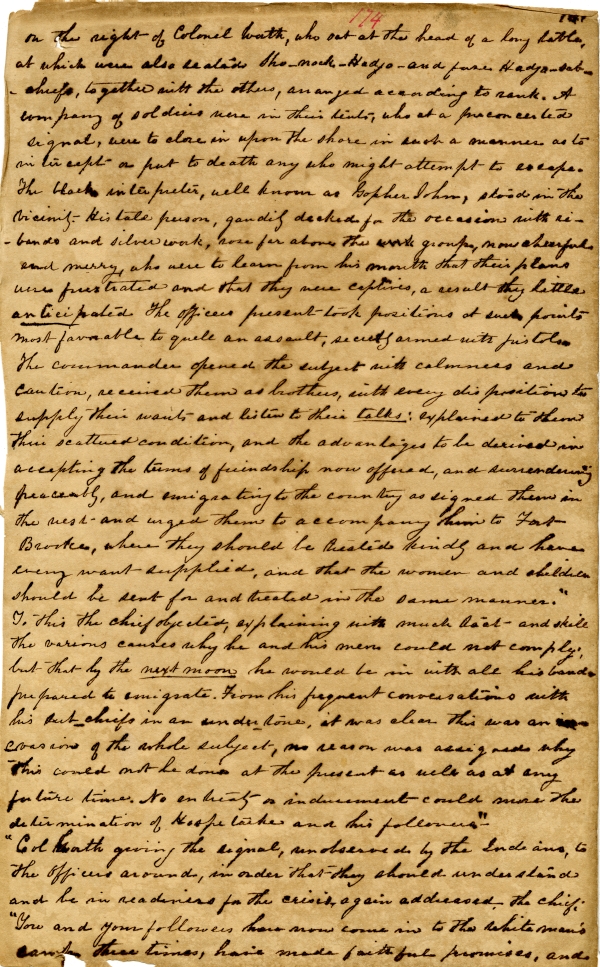 174
on the right of Colonel Worth, who sat at the head of a long table,
at which were also seated Sho-nock-Hadjo- and fuse Hadjo-sub-
-chiefs, together with the others, arranged according to rank. A
company of soldiers were in their tents, who at a preconcerted
signal, were to close in upon the shore in such a manner as to
intercept or put to death any who might attempt to escape.
The black interpreter, well known as Gopher John, stood in the
vicinity. His tall person, gaudily decked for the occasion with ri-
-bands and silver work, rose far above the groups, now cheerful
and merry, who were to learn from his mouth that their plans
were frustrated and that they were captives, a result they little
anticipated The officers present took positions at such points
most favorable to quell an assault, secretly armed with pistols.
The commander opened the subject with calmness and
caution, received them as brothers, with every disposition to
supply their wants and listen to their talks: explained to them
their scattered condition, and the advantages to be derived in
accepting the terms of friendship now offered, and surrendering
peaceably, and emigrating to the country assigned them in
the west- and urged them to accompany him to Fort
Brooke, where they should be treated kindly and have
every want supplied, and that the women and children
should be sent for and treated in the same manner."
To this the chief objected, explaining with much tact- and skill
the various causes why he and his men could not comply,
but that by the next moon he would be in with all his band
prepared to emigrate. From his frequent conversations with
his sub-chiefs in an under tone, it was clear this was an
evasion of the whole subject, no reason was assigned why
this could not be done at the present as well as at any
future time. No entreaty or inducement could move the
determination of Hospetarke and his followers"
"Col Worth giving the signal, unobserved by the Indians, to
the officers around, in order that they should understand
and be in readiness for the crisis, again addressed the chief:
"You and your followers have now come in to the white man's
camp three times, have made faithful promises, and